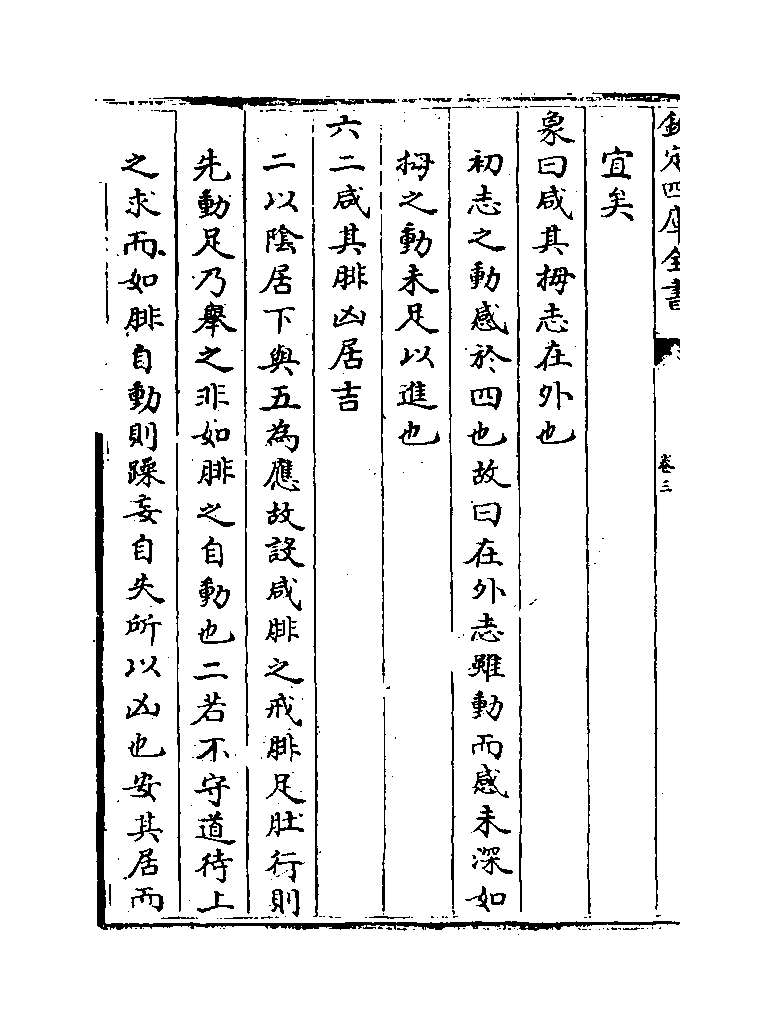 欽定四庫全書
卷三
宜矣
象曰咸其拇志在外也
初志之動感於四也故曰在外志雖動而感未深如
拇之動未足以進也
六二咸其腓凶居吉
二以陰居下與五為應故設咸腓之戒腓足肚行則
先動足乃舉之非如腓之自動也二若不守道待上
之求而如腓自動則躁妄自失所以凶也安其居而